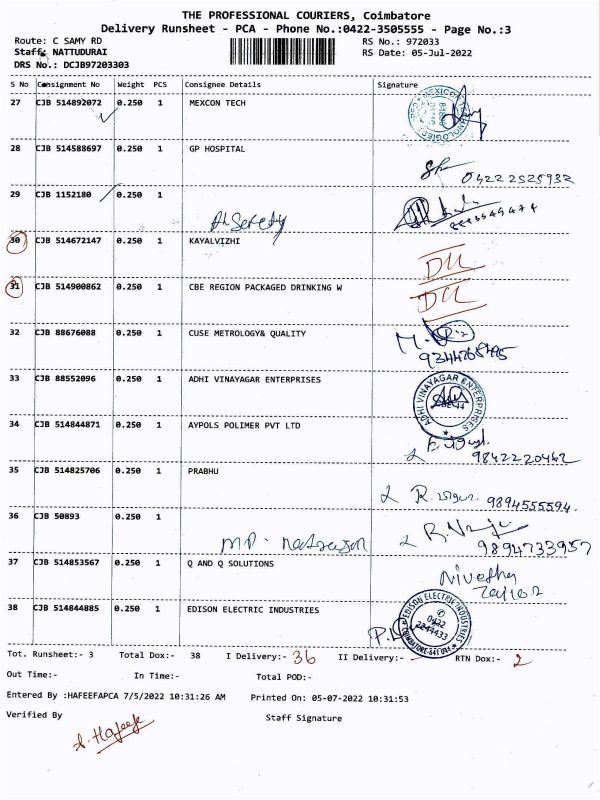 THE PROFESSIONAL COURIERS, Coimbatore
Delivery Runsheet - PCA - Phone No.:0422-3505555 - Page No.:3
Route: C SAMY RD RS No.: 972033
Staff: NATTUDURAI RS Date: 05-Jul-2022
DRS No.: DCJB97203303
S No Consignment No Weight PCS Consignee Details Signature
27 CJB 514892072 0.250 1 MEXCON TECH
28 CJB 514588697 0.250 1 GP HOSPITAL
04222525932
29 CJB 1152180 0.250 1
30 CJB 514672147 0.250 1 KAYALVIZHI
31 CJB 514900862 0.250 1 CBE REGION PACKAGED DRINKING W
32 CJB 88676088 0.250 1 CUSE METROLOGY& QUALITY
33 CJB 88552096 0.250 1 ADHI VINAYAGAR ENTERPRISES
ADHI VINAYAGAR ENTERPRISES
34 CJB 514844871 0.250 1 AYPOLS POLIMER PVT LTD
9842220462
35 CJB 514825706 0.250 1 PRABHU
9894555594
36 CJB 50893 0.250 1
9894733957
37 CJB 514853567 0.250 1 Q AND Q SOLUTIONS
Nivetha
38 CJB 514844885 0.250 1 EDISON ELECTRIC INDUSTRIES
EDISON ELECTRIC INDUSTRIES
Tot. Runsheet:- 3 Total Dox:- 38 I Delivery:- 36 II Delivery:- RTN Dox:- 2
Out Time:- In Time:- Total POD:-
Entered By :HAFEEFAPCA 7/5/2022 10:31:26 AM Printed On: 05-07-2022 10:31:53
Verified By Staff Signature